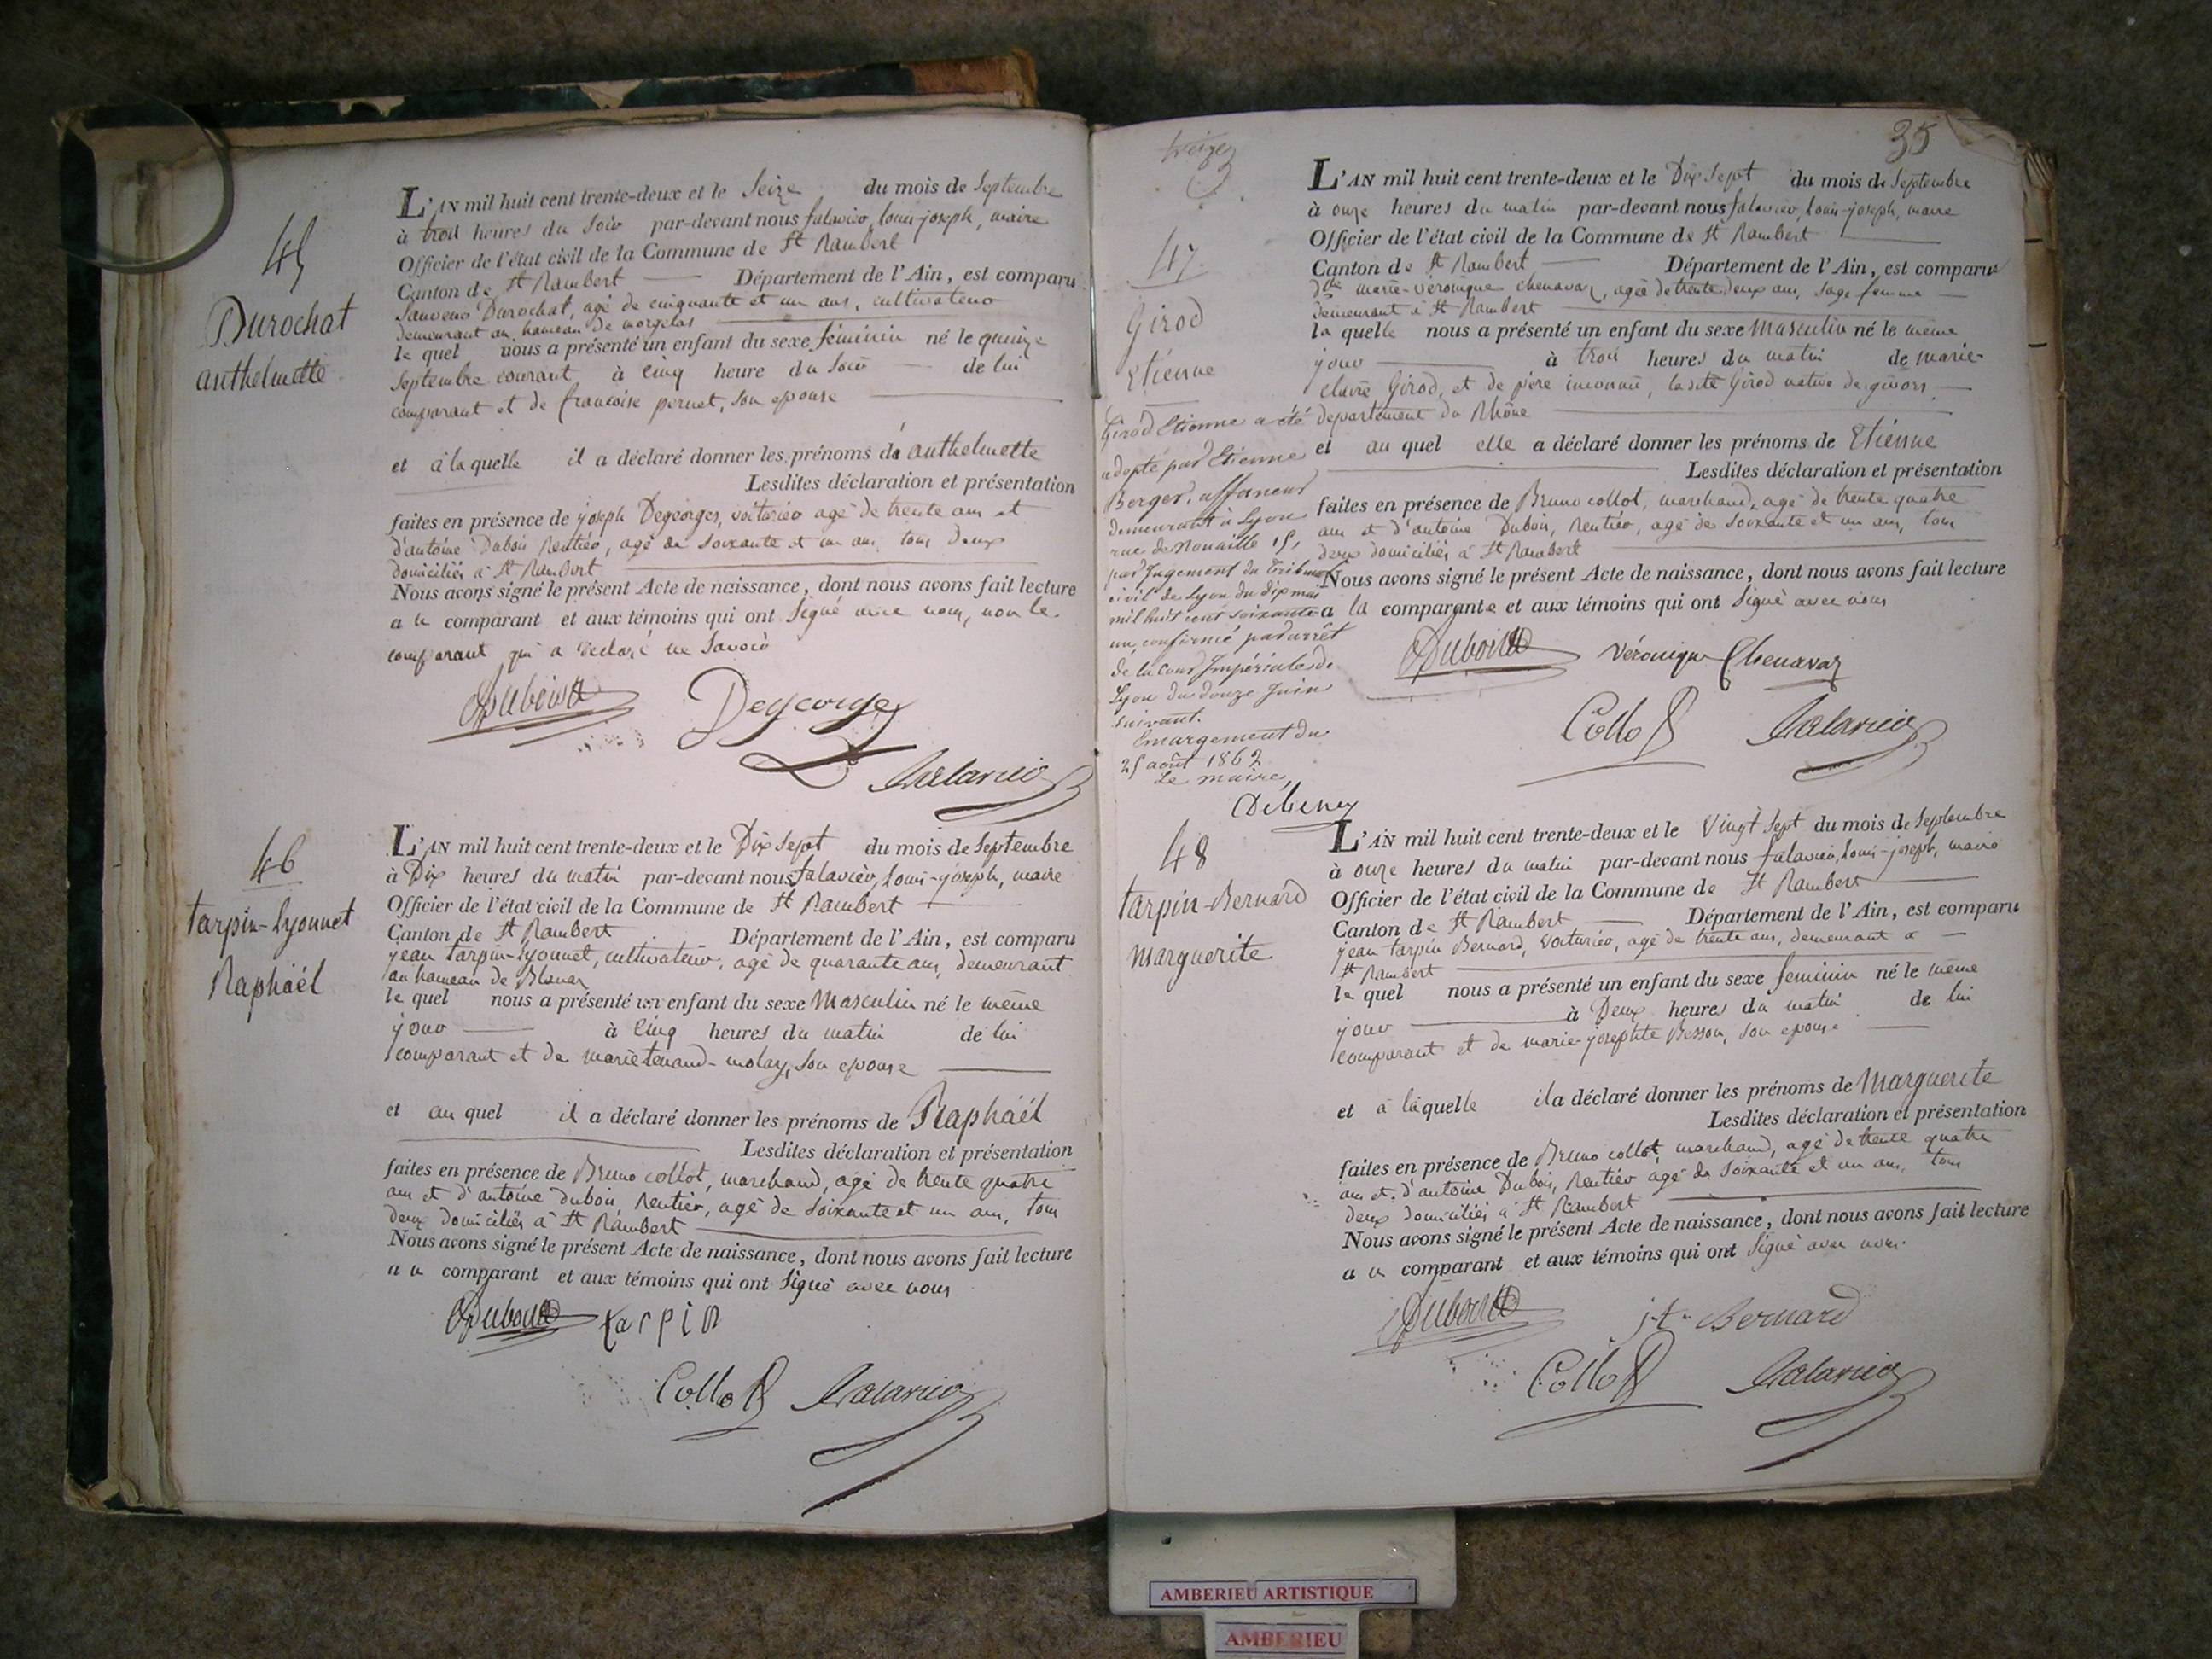 45
Durochat
anthelmette
L'AN mil huit cent trente-deux et le Seize du mois de Septembre
à trois heures du Soir par-devant nous falavier, louis-joseph, maire
Officier de l'état civil de la Commune de St Rambert
Canton de St Rambert Département de l'Ain, est comparu
Durochat, agé de cinquante et un ans, cultivateur
demeurant au hameau de morgelas
le quel nous a présenté un enfant du sexe féminin né le quinze
Septembre courant à cinq heure du Soir de lui
comparant et de françoise pernet, son epouse
et à la quelle il a déclaré donner les prénoms de anthelmette
Lesdites déclaration et présentation
faites en présence de joseph Degeorges, voiturier agé de trente ans et
d'antoine Dubois Rentier, agé de Soixante et un ans tous deux
domiciliés à St Rambert
Nous avons signé le présent Acte de naissance, dont nous avons fait lecture
a u comparant et aux témoins qui ont Signé avec nous, non le
comparant qui a déclaré ne Savoir
Dubois Degeorges
falavier
46
tarpin-Lyonnet
Raphaël
L'AN mil huit cent trente-deux et le Dix Sept du mois de Septembre
à Dix heures du matin par-devant nous falavier, Louis-joseph, maire
Officier de l'état civil de la Commune de St Rambert
Canton de St Rambert Département de l'Ain, est comparu
jean tarpin-Lyonnet, cultivateur, agé de quarante ans, demeurant
au hameau de Blanaz
le quel nous a présenté un enfant du sexe Masculin né le même
jour à cinq heures du matin de lui
comparant et de marie tenand-molay, son epouse
et au quel il a déclaré donner les prénoms de Raphaël
Lesdites déclaration et présentation
faites en présence de Bruno collot, marchand, agé de trente quatre
ans et d'antoine dubois, Rentier, agé de Soixante et un ans, tous
deux domiciliés à St Rambert
Nous avons signé le présent Acte de naissance, dont nous avons fait lecture
a u comparant et aux témoins qui ont Signé avec nous
Dubois tarpin
Collot falavier
treize
35
47
Girod
Etienne
Girod Etienne a été
adopté par Etienne
Berger, affaneur
demeurant à Lyon
rue de Nouaille 15,
par Jugement du Tribunal
civil de Lyon du dix mai
mil huit cent soixante
un, confirmé par arrêt
de la Cour Impériale de
Lyon du douze Juin
suivant.
Emargement du
25 août 1862
Le maire,
L'AN mil huit cent trente-deux et le Dix Sept du mois de Septembre
à onze heures du matin par-devant nous falavier, Louis-joseph, maire
Officier de l'état civil de la Commune de St Rambert
Canton de St Rambert Département de l'Ain, est comparue
dlle marie-véronique chenavaz, agée de trente deux ans, Sage femme
demeurant à St Rambert
la quelle nous a présenté un enfant du sexe Masculin né le même
jour à trois heures du matin de marie-
claire Girod, et de père inconnu, la dite Girod native de givors
departement du Rhône
et au quel elle a déclaré donner les prénoms de Etienne
Lesdites déclaration et présentation
faites en présence de Bruno collot, marchand, agé de trente quatre
ans et d'antoine Dubois, Rentier, agé de Soixante et un ans, tous
deux domiciliés à St Rambert
Nous avons signé le présent Acte de naissance, dont nous avons fait lecture
a la comparante et aux témoins qui ont Signé avec nous
Dubois Véronique Chenavaz
Collot falavier
48
tarpin-Bernard
Marguerite
L'AN mil huit cent trente-deux et le Vingt Sept du mois de Septembre
à onze heures du matin par-devant nous falavier, Louis-joseph, maire
Officier de l'état civil de la Commune de St Rambert
Canton de St Rambert Département de l'Ain, est comparu
jean tarpin Bernard, voiturier, agé de trente ans, demeurant a
St Rambert
le quel nous a présenté un enfant du sexe féminin né le même
jour à Deux heures du matin de lui
comparant et de marie-josephte Besson, son epouse
et à la quelle il a déclaré donner les prénoms de Marguerite
Lesdites déclaration et présentation
faites en présence de Bruno collot, marchand, agé de trente quatre
ans et d'antoine Dubois, Rentier agé de Soixante et un ans, tous
deux domiciliés à St Rambert
Nous avons signé le présent Acte de naissance, dont nous avons fait lecture
a u comparant et aux témoins qui ont Signé avec nous.
Dubois j. t. Bernard
Collot falavier
AMBERIEU ARTISTIQUE
AMBERIEU